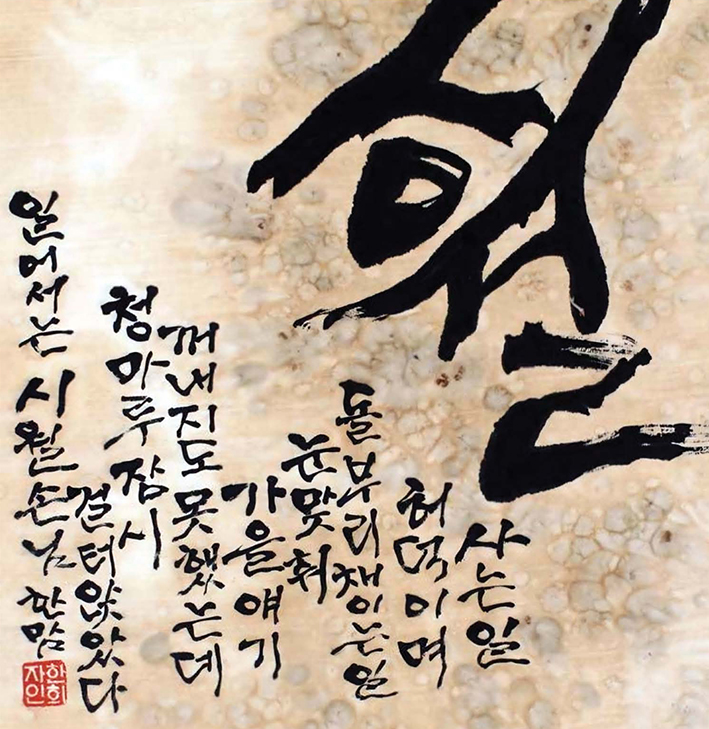 시월
사는일
허덕이며
돌부리채이는일
눈맞춰
가을얘기
꺼내지도못했는데
청마루잠시
걸터앉았다
일어서는 시월손님 한맘
한희
자인